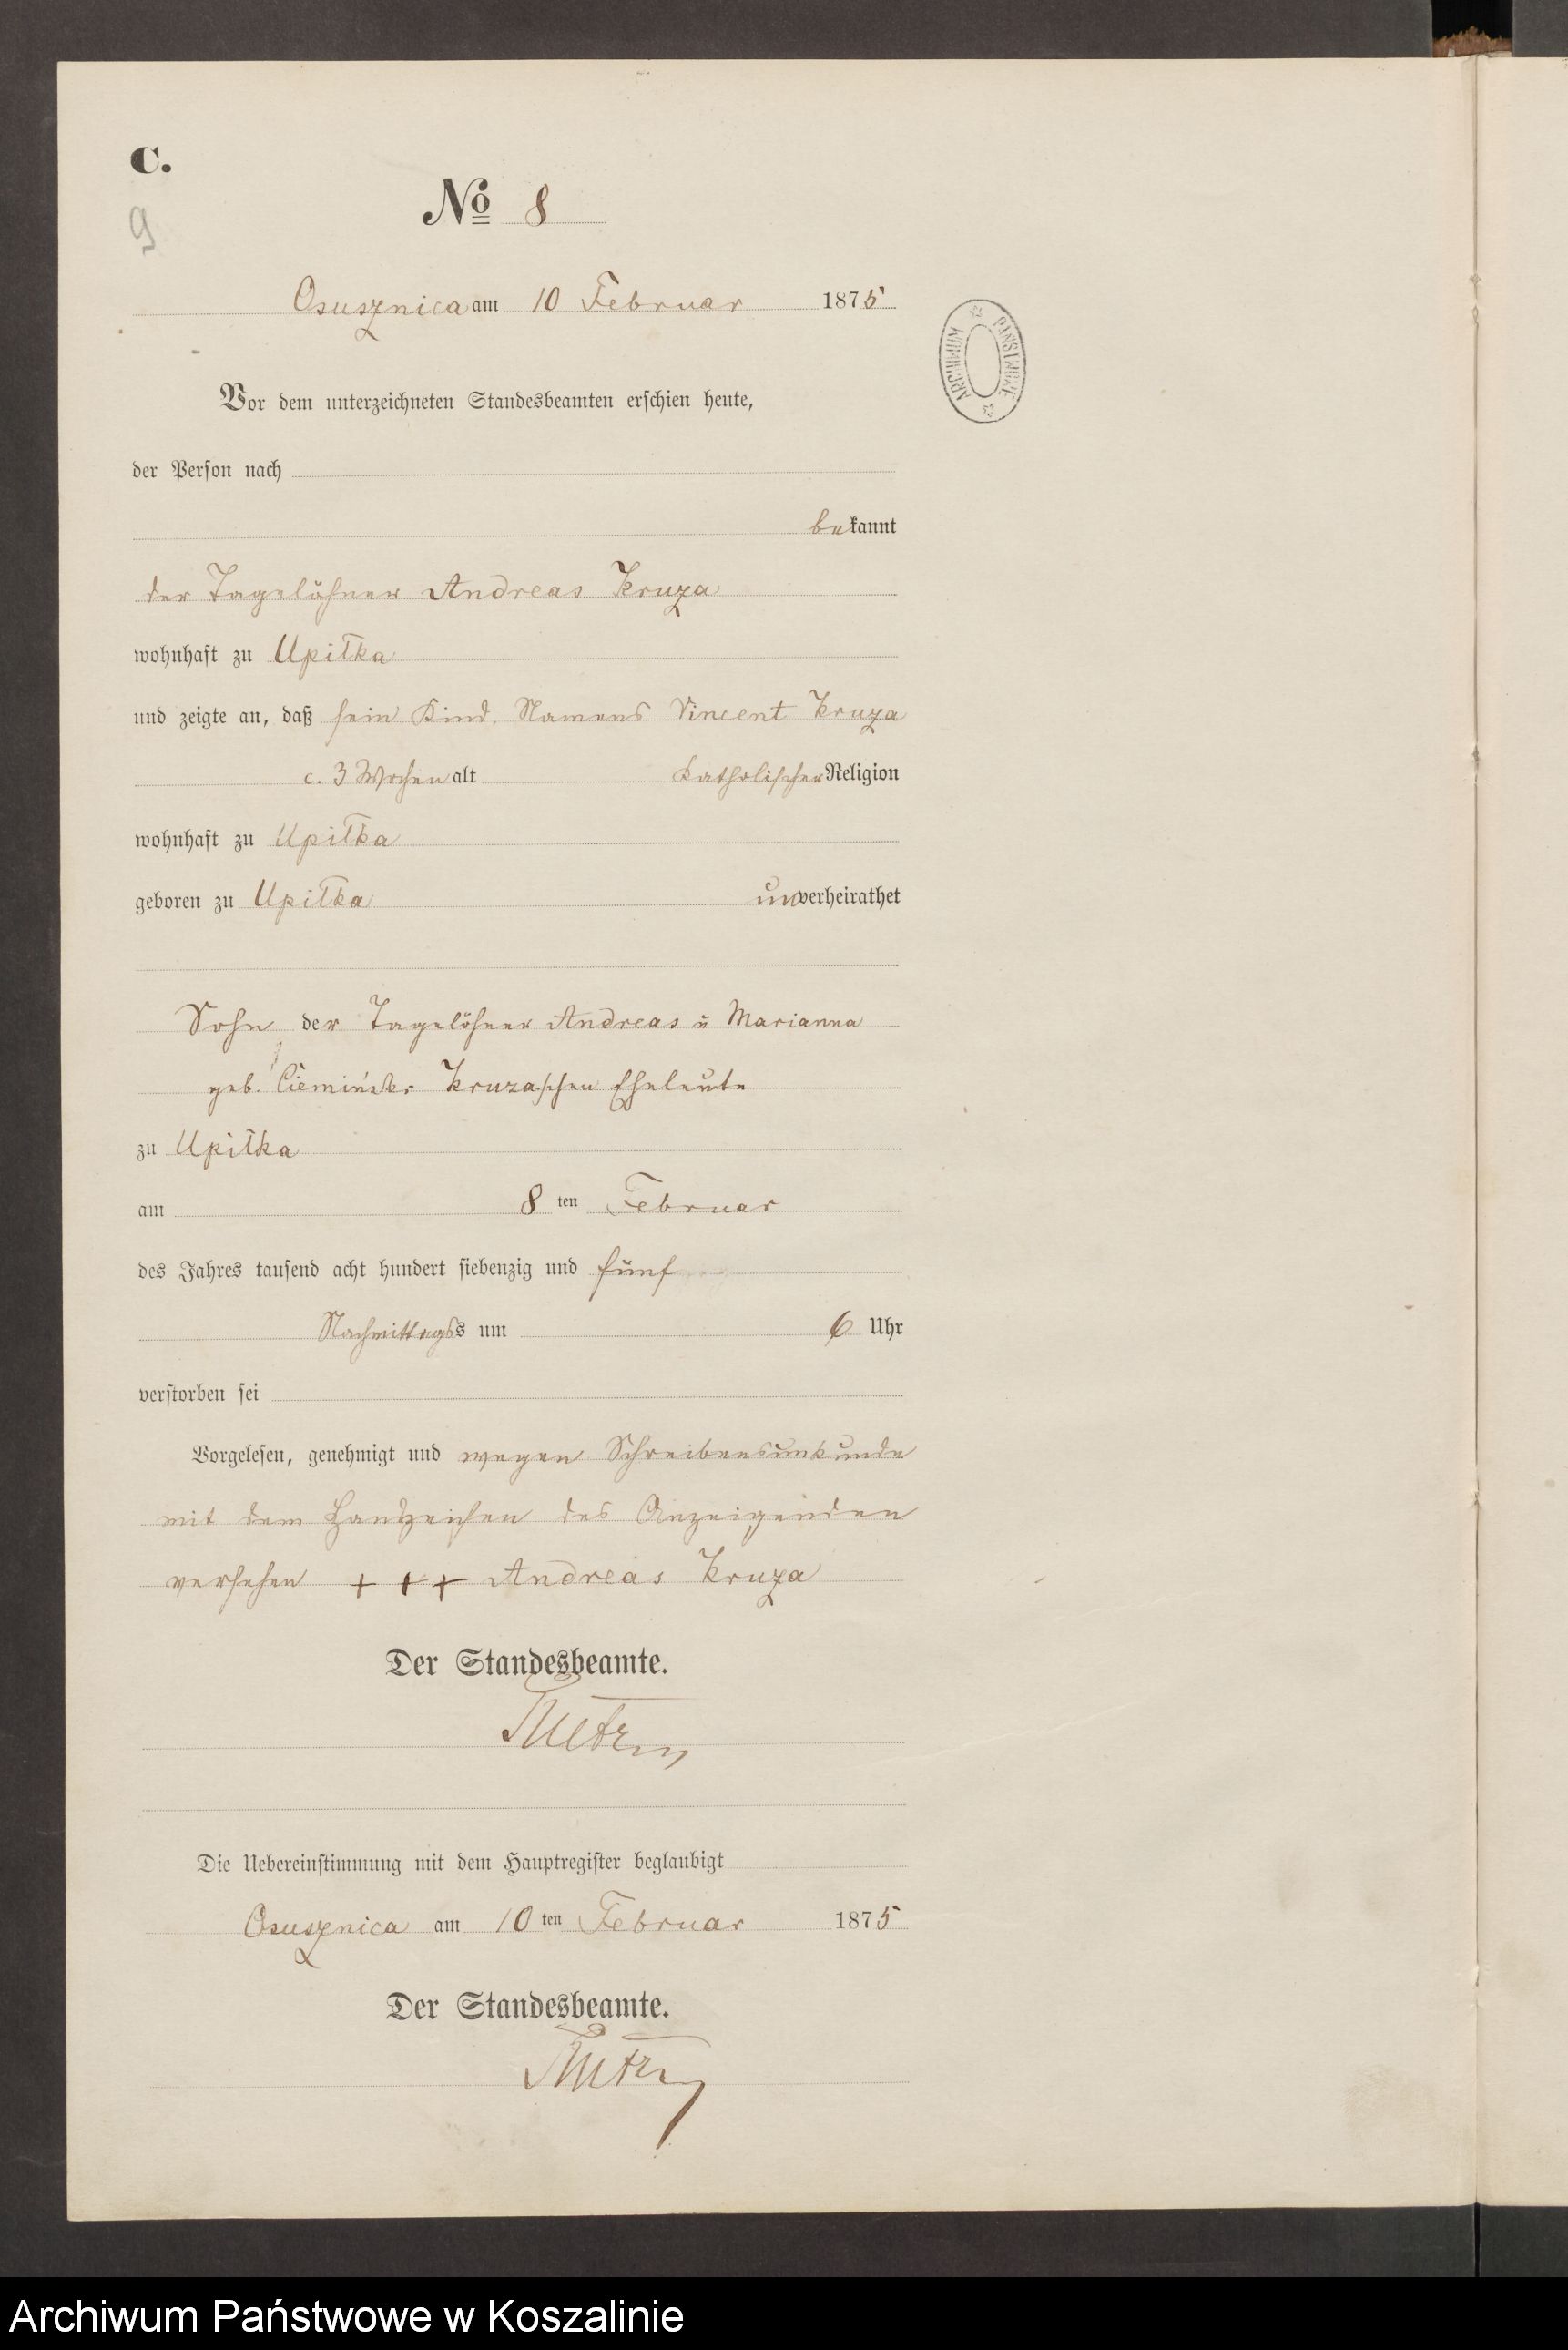 C.
9
No 8
Osusznica am 10 Februar 1875
ARCHIWUM PAŃSTWOWE
Vor dem unterzeichneten Standesbeamten erschien heute,
der Person nach
bekannt
der Tagelöhner Andreas Kruza
wohnhaft zu Upiłka
und zeigte an, daß sein Kind, Namens Vincent Kruza
c. 3 Wochen alt katholischer Religion
wohnhaft zu Upiłka
geboren zu Upiłka unverheirathet
Sohn der Tagelöhner Andreas u Marianna
geb. Kruzaschen Eheleute
zu Upiłka
am 8 ten Februar
des Jahres tausend acht hundert siebenzig und fünf
Nachmittags um 6 Uhr
verstorben sei
Vorgelesen, genehmigt und wegen Schreibensunkunde
mit dem Handzeichen des Anzeigenden
versehen + + + Andreas Kruza
Der Standesbeamte.
Die Uebereinstimmung mit dem Hauptregister beglaubigt
Osusznica am 10 ten Februar 1875
Der Standesbeamte.
Archiwum Państwowe w Koszalinie